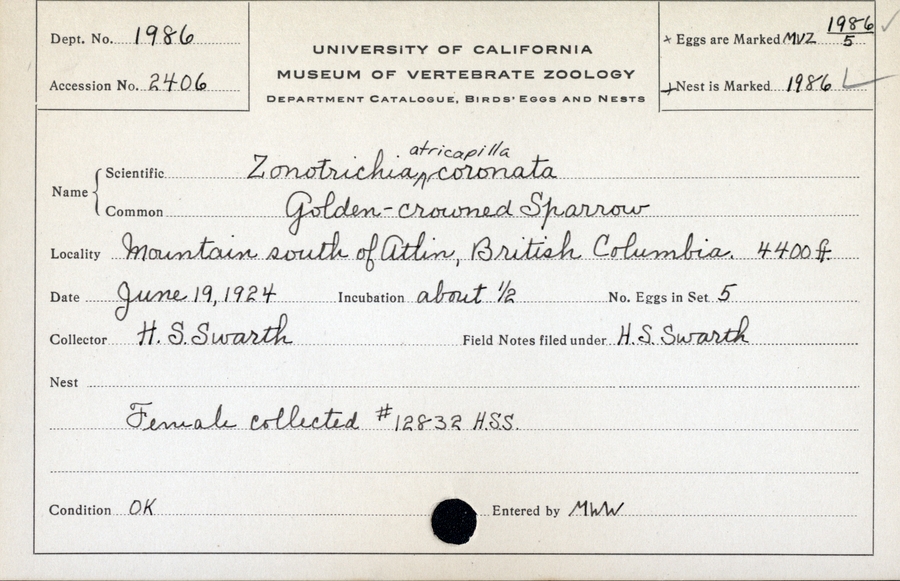 Dept. No. 1986
Accession No. 2406
UNIVERSITY OF CALIFORNIA
MUSEUM OF VERTEBRATE ZOOLOGY
DEPARTMENT CATALOGUE, BIRDS' EGGS AND NESTS
+ Eggs are Marked MVZ 1986/5 ✓
+ Nest is Marked 1986 ✓
Name { Scientific Zonotrichia ^ atricapilla coronata
Common Golden-crowned Sparrow
Locality Mountain south of Atlin, British Columbia. 4400 ft.
Date June 19, 1924 Incubation about 1/2 No. Eggs in Set 5
Collector H. S. Swarth Field Notes filed under H. S. Swarth
Nest
Female collected #12832 HSS.
Condition OK Entered by MWW